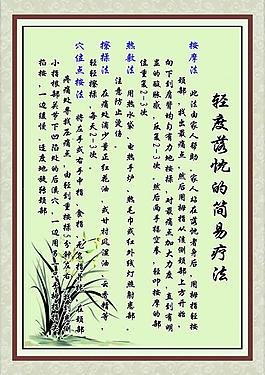 轻度落忱的简易疗法
按摩法 此法由家人帮助，家人站在落忱者身后，用拇指轻按
颈部，找出最痛点，然后用拇指从该侧颈部上方开始
向下到肩臂均匀有力地按揉，对最痛点加大力度，直到有明
显的酸胀感，反复2-3次，然后两手握空拳，轻叩按摩的部
位重复2-3次
热敷法 用热水袋、电热手炉、热毛巾或红外线灯照射患部，
注意防止烫伤。
擦揉法 在痛处滴少量正红花油，或甘村风湿油、云香精等，
轻轻擦揉，每天2-3次
穴位点按法 将左手或右手中指、食指、无名指并拢，在颈部
疼痛处寻找压痛点，由轻到重按揉5分钟左右
小指根部关节下凹陷处的后溪穴，一边用
掐按，一边缓慢、适度地旋转颈部